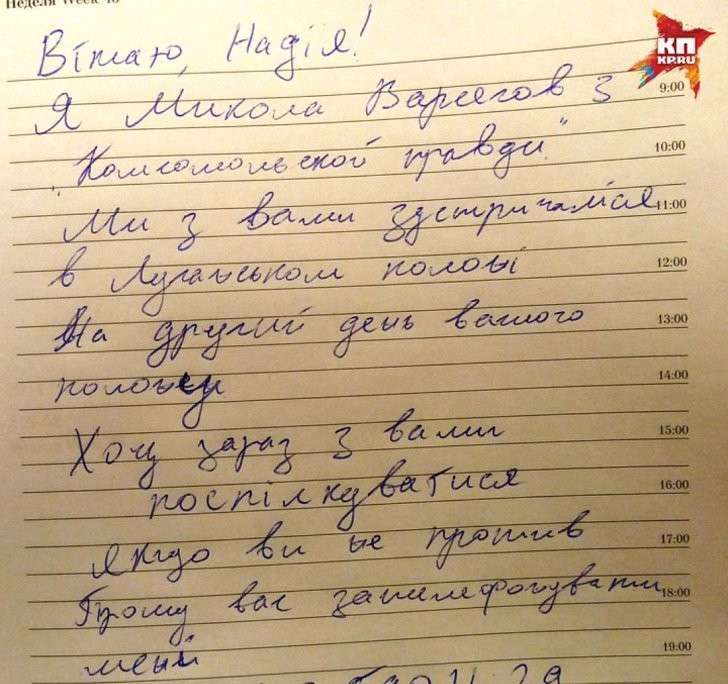 Неделя Week 48
КП
KP.RU
Вітаю, Надія!
Я Микола Варсегов з
9:00
"Комсомольской правди"
10:00
Ми з вами здстричалїся
11:00
в Луганськом полоні
12:00
На другий день вашого
13:00
полону
14:00
Хочу зараз з вами
15:00
поспілкуватися
16:00
якщо ви не против
17:00
Прошу вас зателефонувати
18:00
мені
19:00